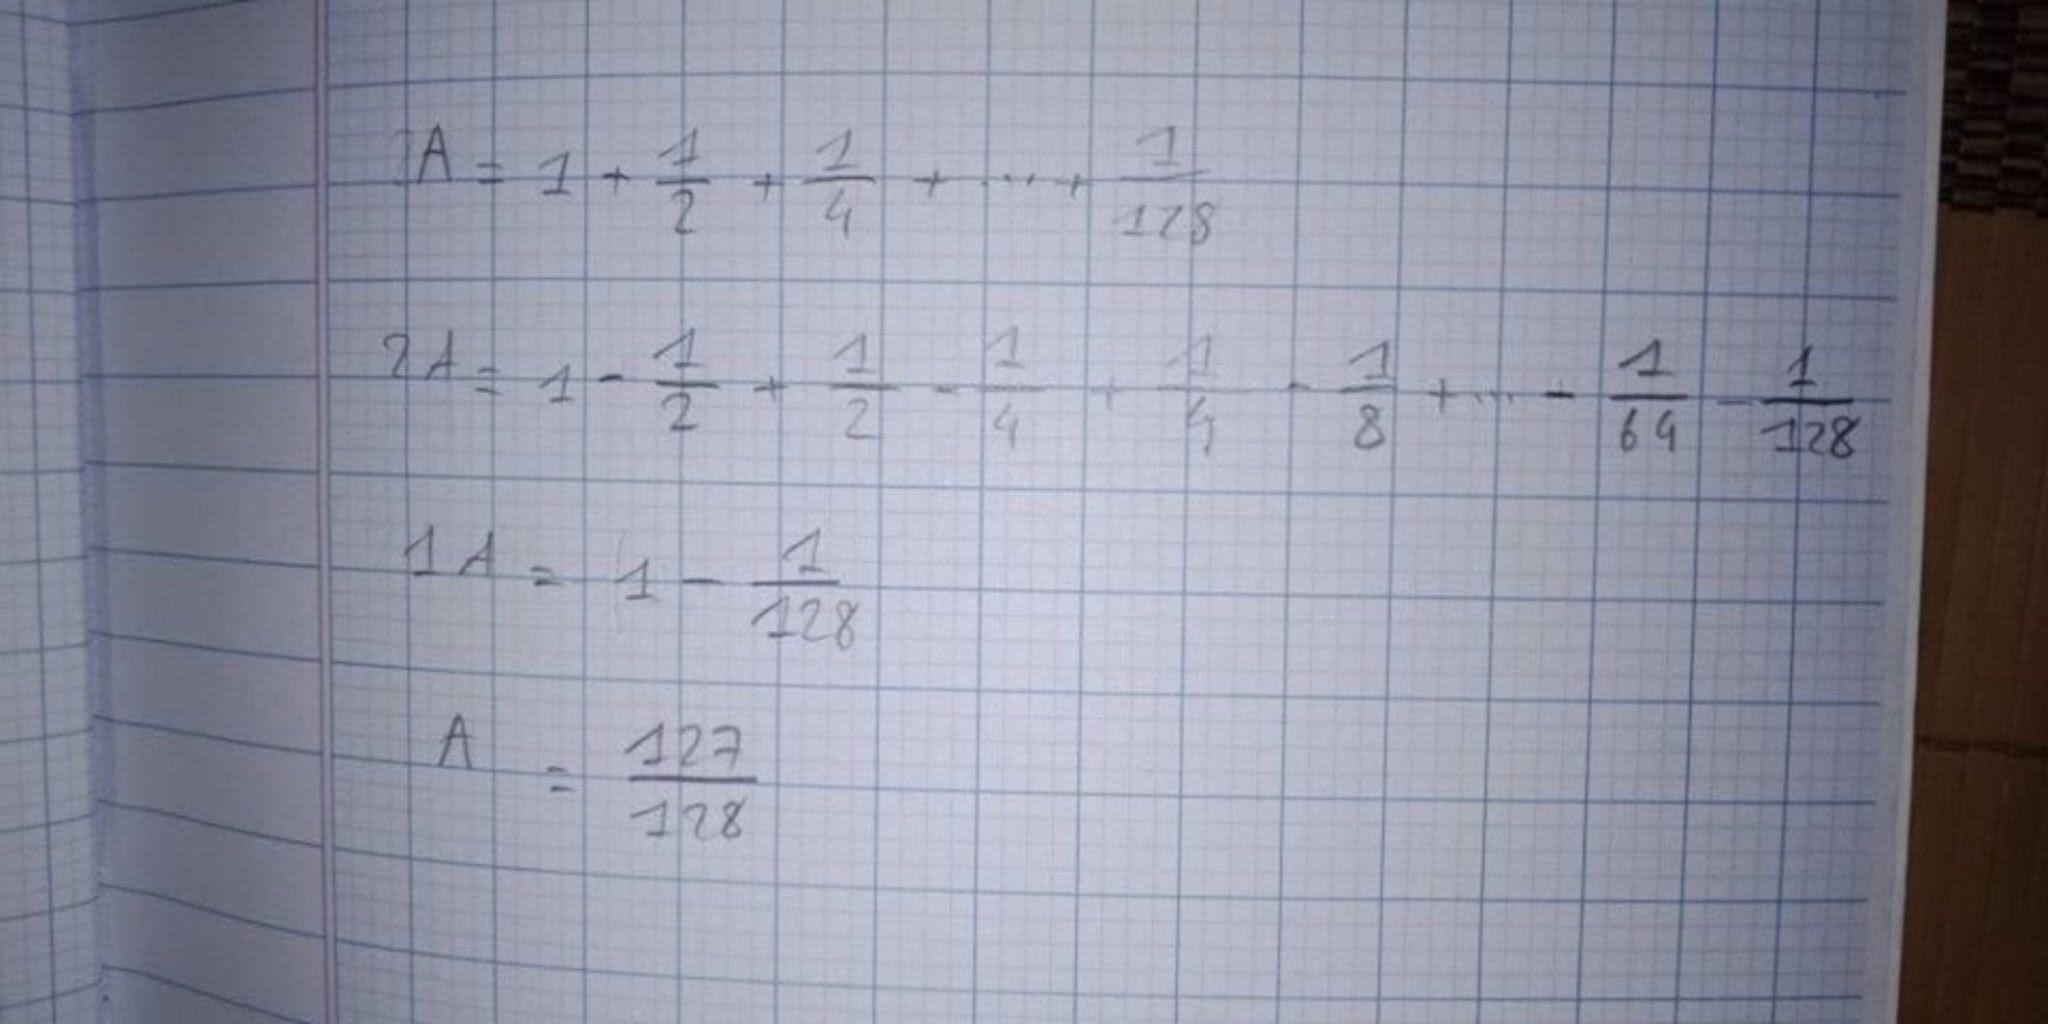 A = 1 + 1/2 + 1/4 + ... + 1/128
2A = 1 - 1/2 + 1/2 - 1/4 + 1/4 - 1/8 + ... - 1/64 - 1/128
1A = 1 - 1/128
A = 127/128